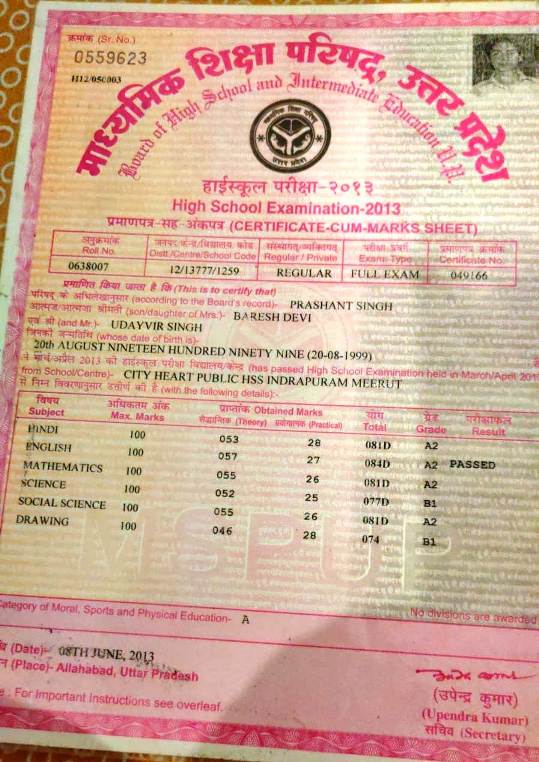 क्रमांक (Sr. No.)
0559623
H12/050003
माध्यमिक शिक्षा परिषद्, उत्तर प्रदेश
Board of High School and Intermediate Education U.P.
माध्यमिक शिक्षा परिषद
उत्तर प्रदेश
हाईस्कूल परीक्षा-२०१३
High School Examination-2013
प्रमाणपत्र-सह-अंकपत्र (CERTIFICATE-CUM-MARKS SHEET)
अनुक्रमांक जनपद/केन्द्र/विद्यालय कोड संस्थागत/व्यक्तिगत परीक्षा प्रकार प्रमाणपत्र क्रमांक
Roll No. Distt./Centre/School Code Regular / Private Exam. Type Certificate No.
0638007 12/13777/1259 REGULAR FULL EXAM 049166
प्रमाणित किया जाता है कि (This is to certify that)
परिषद के अभिलेखानुसार (according to the Board's record)- PRASHANT SINGH
आत्मज/आत्मजा श्रीमती (son/daughter of Mrs.)- BARESH DEVI
एवं श्री (and Mr.)- UDAYVIR SINGH
जिनकी जन्मतिथि (whose date of birth is)-
20th AUGUST NINETEEN HUNDRED NINETY NINE (20-08-1999)
ने मार्च/अप्रैल 2013 की हाईस्कूल परीक्षा विद्यालय/केन्द्र (has passed High School Examination held in March/April 201
from School/Centre)- CITY HEART PUBLIC HSS INDRAPURAM MEERUT
से निम्न विवरणानुसार उत्तीर्ण की है (with the following details):-
विषय अधिकतम अंक प्राप्तांक Obtained Marks योग ग्रेड परीक्षाफल
Subject Max. Marks सैद्धान्तिक (Theory) प्रयोगात्मक (Practical) Total Grade Result
HINDI 100 053 28 081D A2
ENGLISH 100 057 27 084D A2 PASSED
MATHEMATICS 100 055 26 081D A2
SCIENCE 100 052 25 077D B1
SOCIAL SCIENCE 100 055 26 081D A2
DRAWING 100 046 28 074 B1
MSPUP
Category of Moral, Sports and Physical Education- A
No divisions are awarded
(Date)- 08TH JUNE, 2013
(Place)- Allahabad, Uttar Pradesh
. For Important Instructions see overleaf.
(उपेन्द्र कुमार)
(Upendra Kumar)
सचिव (Secretary)